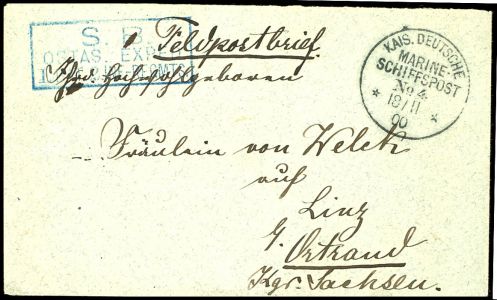 S. B.
OSTAS. EXPED
Feldpostbrief.
Ihro. Hochwohlgeboren
KAIS. DEUTSCHE
MARINE-
SCHIFFSPOST
No 4
* 18/11 *
00
Fräulein von Welck
auf
Linz
Ortrand
Kgr. Sachsen.